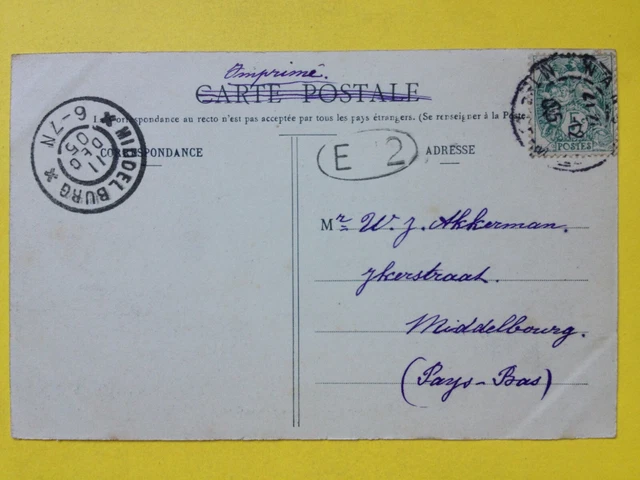 Imprimé.
CARTE POSTALE
La Correspondance au recto n'est pas acceptée par tous les pays étrangers. (Se renseigner à la Poste
CORRESPONDANCE
ADRESSE
E 2
Mr W. J. Akkerman.
Ykerstraat.
Middelbourg.
(Pays-Bas)
MIDDELBURG
6-7N
05
11
POSTES